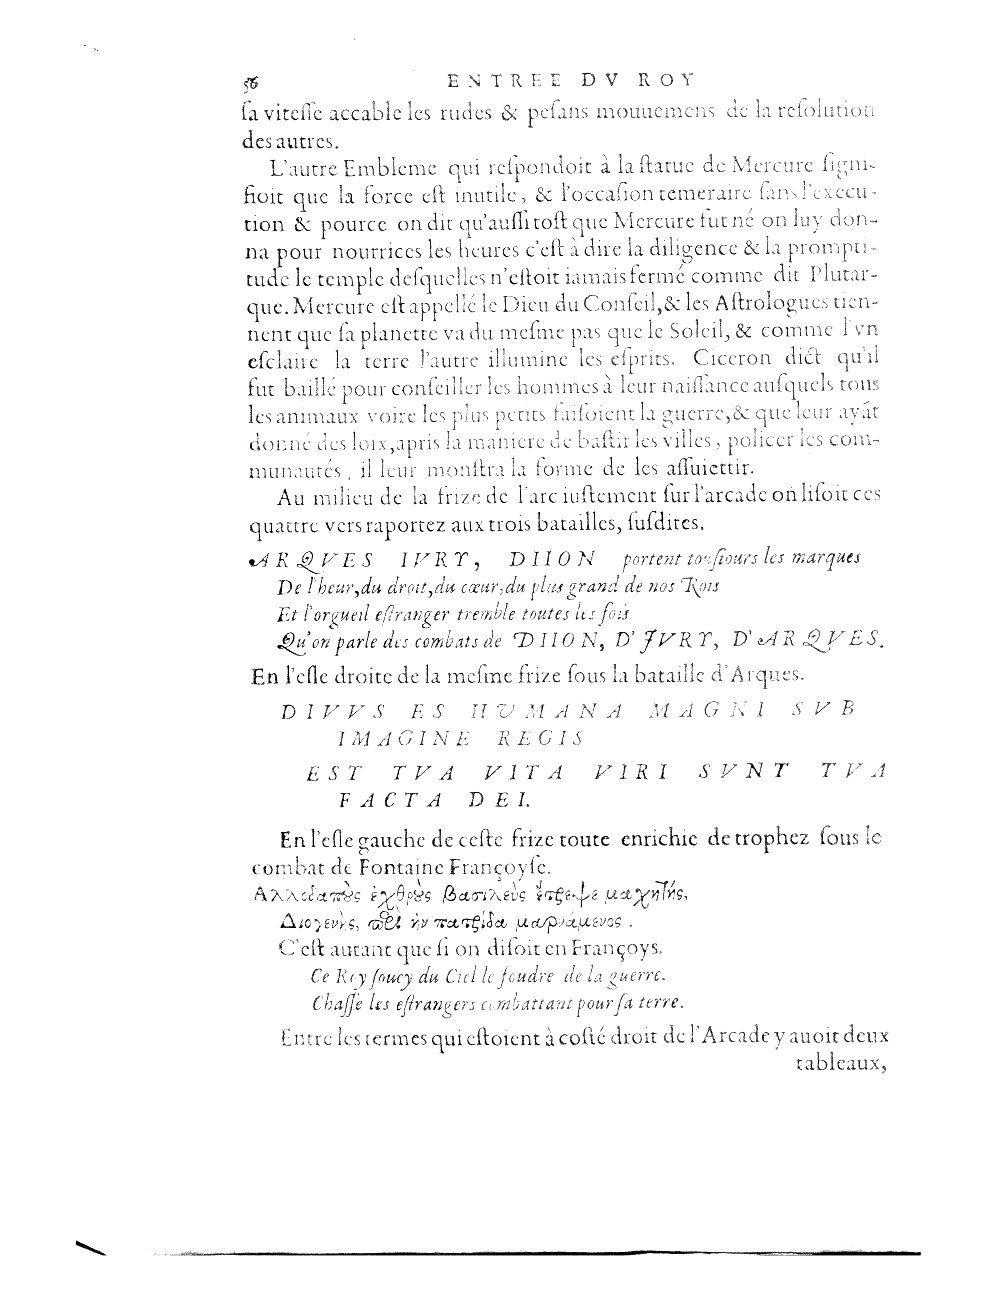 56 ENTREE DV ROY
ſa viteſſe accable les rudes & peſans mouuemens de la reſolution
des autres.
L'autre Embleme qui reſpondoit à la ſtatue de Mercure ſigni-
fioit que la force eſt inutile, & l'occaſion temeraire ſans l'execu-
tion & pource on dit qu'auſſi toſt que Mercure fut né on luy don-
na pour nourrices les heures c'eſt à dire la diligence & la prompti-
tude le temple deſquelles n'eſtoit iamais fermé comme dit Plutar-
que. Mercure eſt appellé le Dieu du Conſeil, & les Aſtrologues tien-
nent que ſa planette va du meſme pas que le Soleil, & comme l'vn
eſclaire la terre l'autre illumine les eſprits. Ciceron dict qu'il
fut baillé pour conſeiller les hommes à leur naiſſance auſquels tous
les animaux voire les plus petits faiſoient la guerre, & que leur ayãt
donné des loix, apris la maniere de baſtir les villes, policer les com-
munautés, il leur monſtra la forme de les aſſuiettir.
Au milieu de la frize de l'arc iuſtement ſur l'arcade on liſoit ces
quattre vers raportez aux trois batailles, ſuſdites.
ARQVES IVRY, DIION portent touſiours les marques
De l'heur, du droit, du cœur, du plus grand de nos Rois
Et l'orgueil eſtranger tremble toutes les fois
Qu'on parle des combats de DIION, D'IVRY, D'ARQVES.
En l'eſle droite de la meſme frize ſous la bataille d'Arques.
DIVVS ES HUMANA MAGNI SVB
IMAGINE REGIS
EST TVA VITA VIRI SVNT TVA
FACTA DEI.
En l'eſle gauche de ceſte frize toute enrichie de trophez ſous le
combat de Fontaine Françoyſe.
Αλλοδαποὺς ἐχθροὺς βασιλεὺς ἔτρεψε μαχητὴς,
Διογενὴς, περὶ ἣν πατρίδα μαρνάμενος.
C'eſt autant que ſi on diſoit en Françoys.
Ce Roy ſoucy du Ciel le foudre de la guerre.
Chaſſe les eſtrangers combattant pour ſa terre.
Entre les termes qui eſtoient à coſté droit de l'Arcade y auoit deux
tableaux,